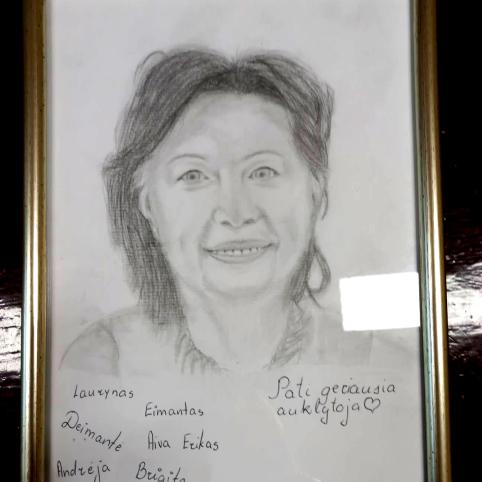 Laurynas
Eimantas
Deimantė
Aiva Erikas
Andrėja
Brigita
Pati geriausia
auklėtoja♡